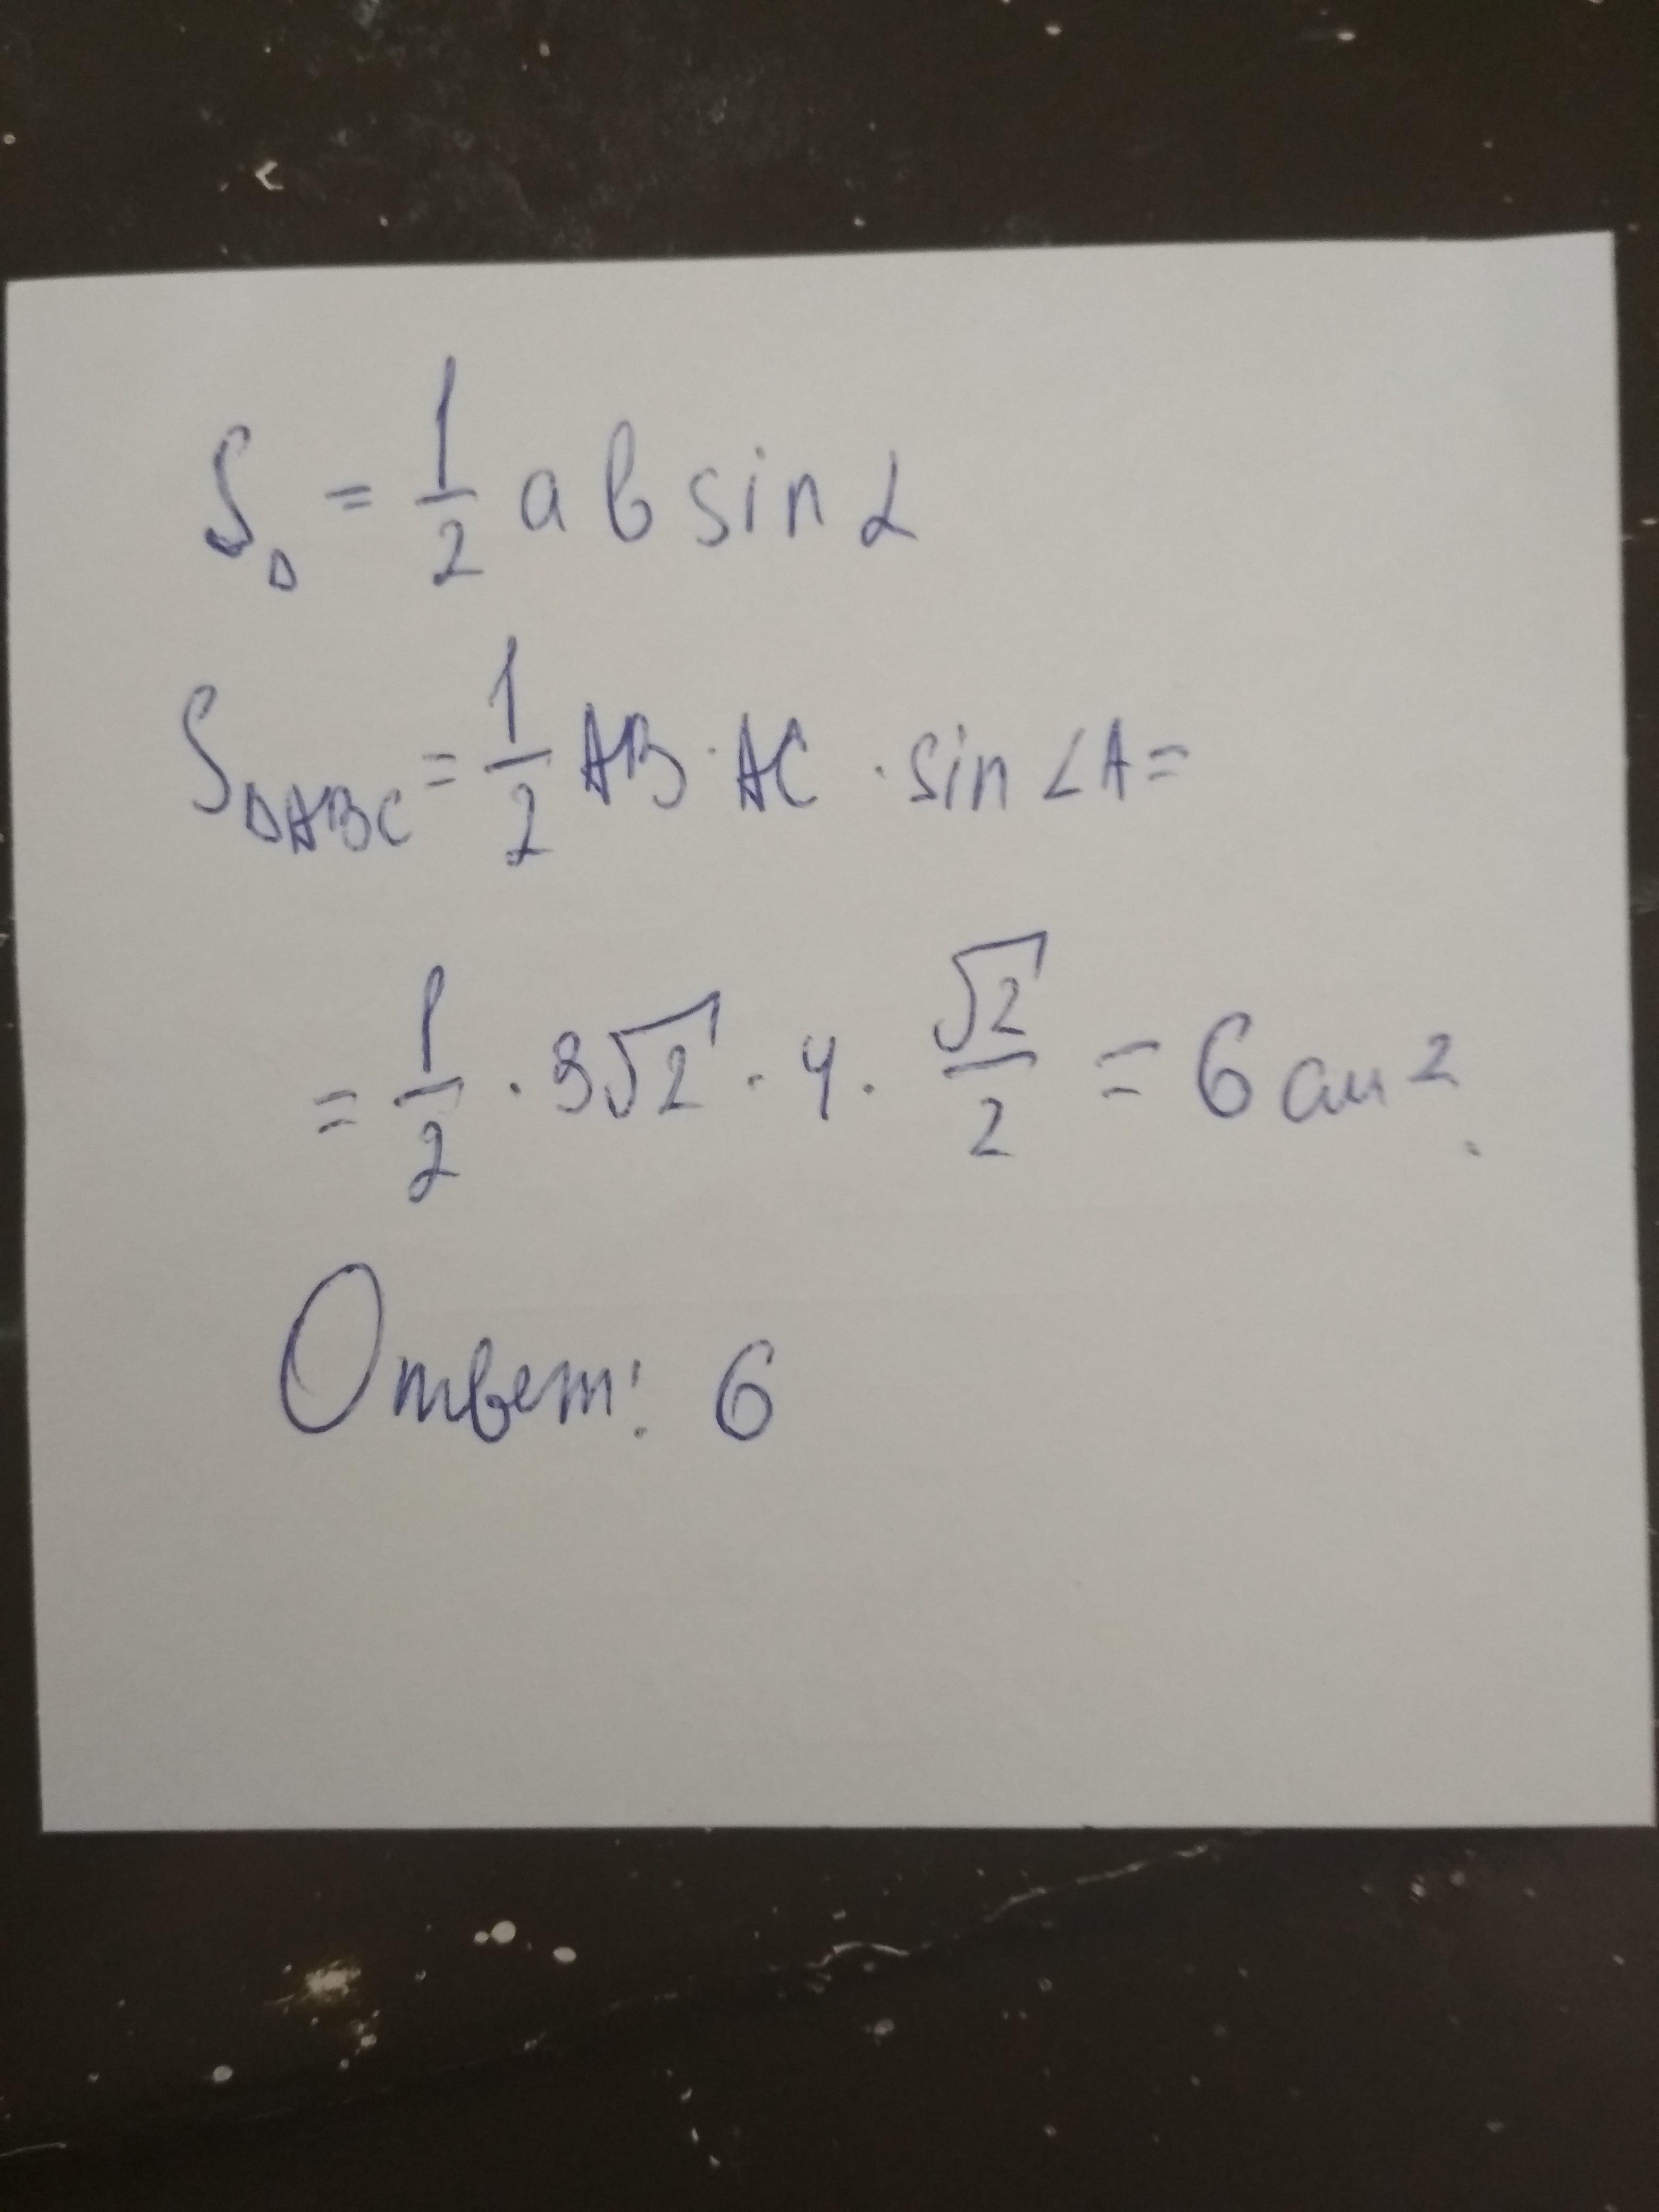 S△ = 1/2 a b sin α
S△ABC = 1/2 AB · AC · sin ∠A =
= 1/2 · 3√2 · 4 · √2/2 = 6 см².
Ответ: 6